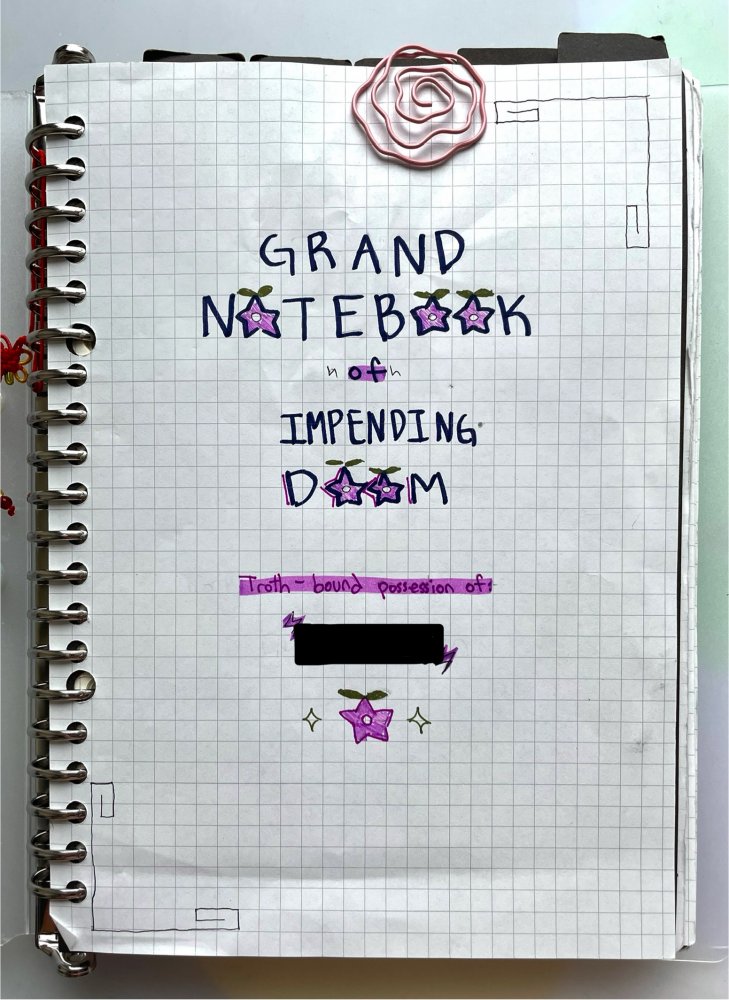 GRAND
NOTEBOOK
"of"
IMPENDING
DOOM
Troth-bound possession of: